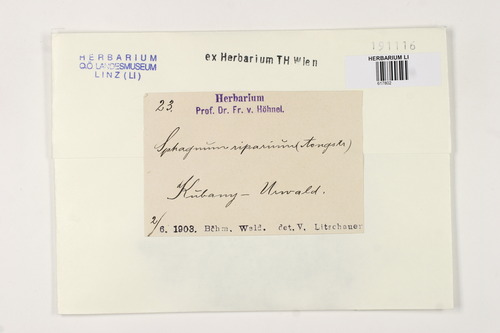 HERBARIUM
O.Ö. LANDESMUSEUM
LINZ (LI)
ex Herbarium TH Wien
191116
HERBARIUM LI
23.
Herbarium
Prof. Dr. Fr. v. Höhnel.
Sphagnum riparium (Aongstr.)
Kubany - Urwald.
2/6. 1903. Böhm. Wald. det. V. Litschauer